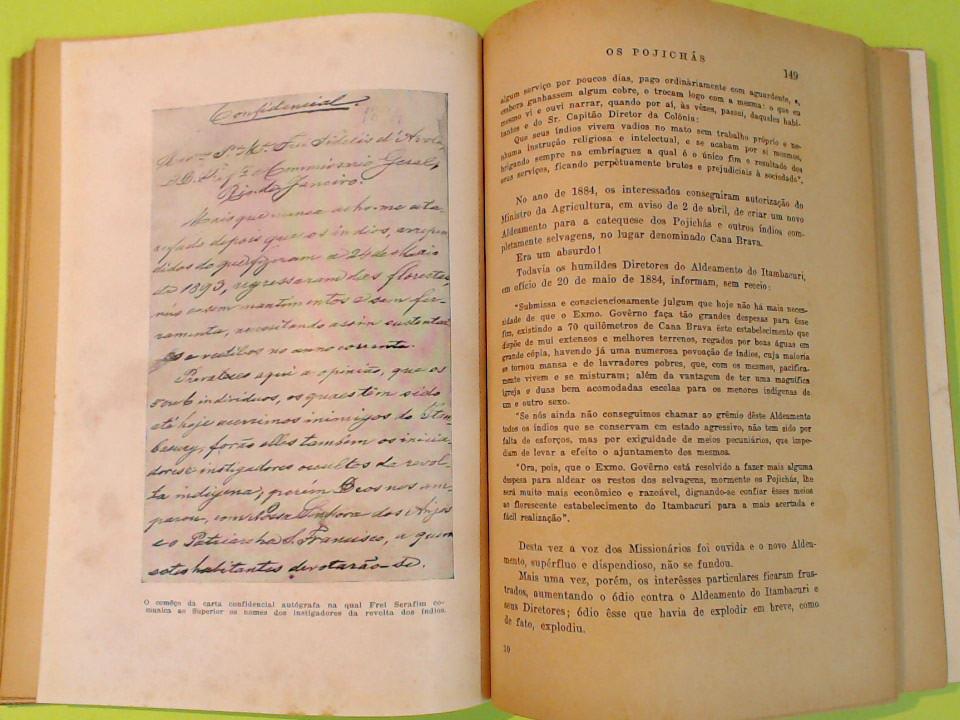 Confidencial.
Fidelis d'Avola
Commissario Geral,
Rio de Janeiro.
Mais que nunca acho-me ata-
refado depois que os indios, arrepen-
didos do que fizeram a 24 de Maio
de 1893, regressaram das florestas,
nús e sem mantimentos e sem fer-
ramenta, necessitando assim sustental-
os e vestil-os no anno corrente.
Prevalece aqui a opinião, que os
5 ou 6 individuos, os quaes tem sido
até hoje acerrimos inimigos do Itam-
bacury, forão elles tambem os inicia-
dores e instigadores occultos da revol-
ta indigena; porém Deos nos am-
parou, com Nossa Senhora dos Anjos
e o Patriarcha S. Francisco, a quem
estes habitantes devotarão-se.
O comêço da carta confidencial autógrafa na qual Frei Serafim co-
munica ao Superior os nomes dos instigadores da revolta dos índios.
OS POJICHÁS
149
algum serviço por poucos dias, pago ordinàriamente com aguardente, e,
embora ganhassem algum cobre, o trocam logo com a mesma: o que eu
mesmo vi e ouvi narrar, quando por aí, às vêzes, passei, daqueles habi-
tantes e do Sr. Capitão Diretor da Colônia:
Que seus índios vivem vadios no mato sem trabalho próprio e ne-
nhuma instrução religiosa e intelectual, e se acabam por si mesmos,
brigando sempre na embriaguez a qual é o único fim e resultado dos
seus serviços, ficando perpètuamente brutos e prejudiciais à sociedade".
No ano de 1884, os interessados conseguiram autorização do
Ministro da Agricultura, em aviso de 2 de abril, de criar um novo
Aldeamento para a catequese dos Pojichás e outros índios com-
pletamente selvagens, no lugar denominado Cana Brava.
Era um absurdo!
Todavia os humildes Diretores do Aldeamento do Itambacuri,
em ofício de 20 de maio de 1884, informam, sem receio:
"Submissa e conscienciosamente julgum que hoje não há mais neces-
sidade de que o Exmo. Govêrno faça tão grandes despesas para êsse
fim, existindo a 70 quilômetros de Cana Brava êste estabelecimento que
dispõe de mui extensos e melhores terrenos, regados por boas águas em
grande cópia, havendo já uma numerosa povoação de índios, cuja maioria
se tornou mansa e de lavradores pobres, que, com os mesmos, pacifica-
mente vivem e se misturam; além da vantagem de ter uma magnífica
igreja e duas bem acomodadas escolas para os menores indígenas de
um e outro sexo.
"Se nós ainda não conseguimos chamar ao grêmio dêste Aldeamento
todos os índios que se conservam em estado agressivo, não tem sido por
falta de esforços, mas por exiguidade de meios pecuniários, que impe-
dam de levar a efeito o ajuntamento dos mesmos.
"Ora, pois, que o Exmo. Govêrno está resolvido a fazer mais alguma
despesa para aldear os restos dos selvagens, mormente os Pojichás, lhe
será muito mais econômico e razoável, dignando-se confiar êsses meios
ao florescente estabelecimento do Itambacurí para a mais acertada e
fácil realização".
Desta vez a voz dos Missionários foi ouvida e o novo Aldea-
mento, supérfluo e dispendioso, não se fundou.
Mais uma vez, porém, os interêsses particulares ficaram frus-
trados, aumentando o ódio contra o Aldeamento do Itambacuri e
seus Diretores; ódio êsse que havia de explodir em breve, como
de fato, explodiu.
10